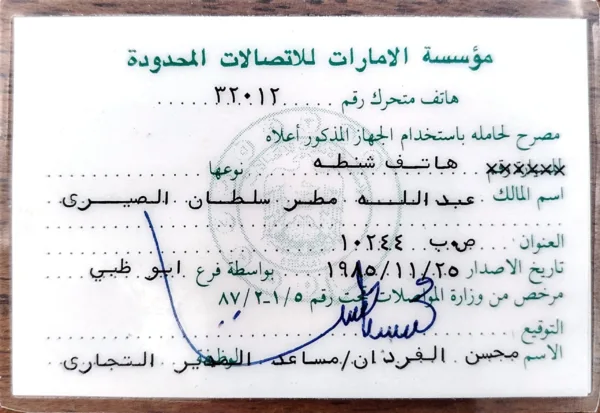 مؤسسة الامارات للاتصالات المحدودة
هاتف متحرك رقم ٣٢٠١٢
مصرح لحامله باستخدام الجهاز المذكور أعلاه
هاتف شنطه نوعها
اسم المالك عبدالله مطر سلطان الصيرى
العنوان ص٠ب ١٠٢٤٤
تاريخ الاصدار ١٩٨٥/١١/٢٥ بواسطة فرع ابو ظبي
مرخص من وزارة المواصلات تحت رقم ٨٧/٢-١/٥
التوقيع
الاسم محسن الفردان/مساعد المدير التجارى